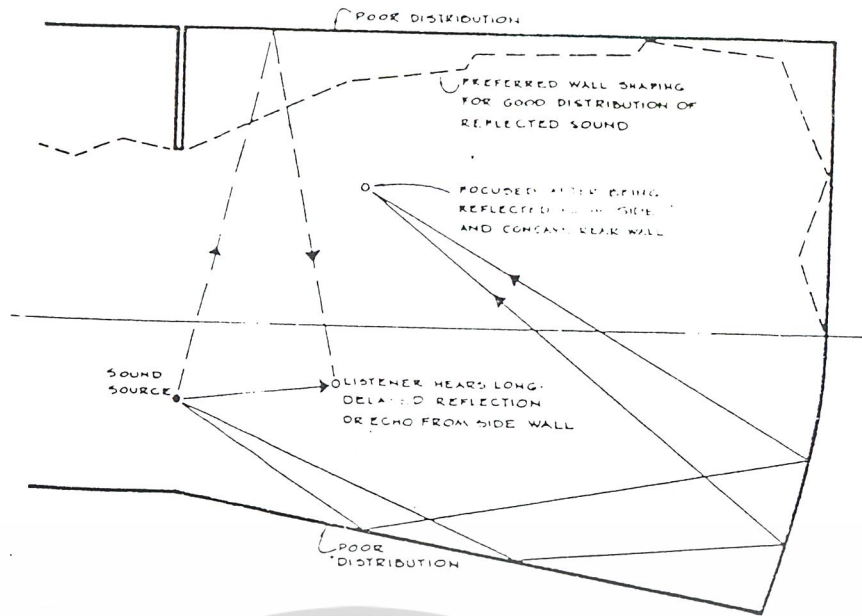 POOR DISTRIBUTION
PREFERRED WALL SHAPING
FOR GOOD DISTRIBUTION OF
REFLECTED SOUND
FOCUSED AFTER BEING
REFLECTED SIDE
AND CONCAVE REAR WALL
SOUND
SOURCE
LISTENER HEARS LONG-
DELAYED REFLECTION
OR ECHO FROM SIDE WALL
POOR
DISTRIBUTION